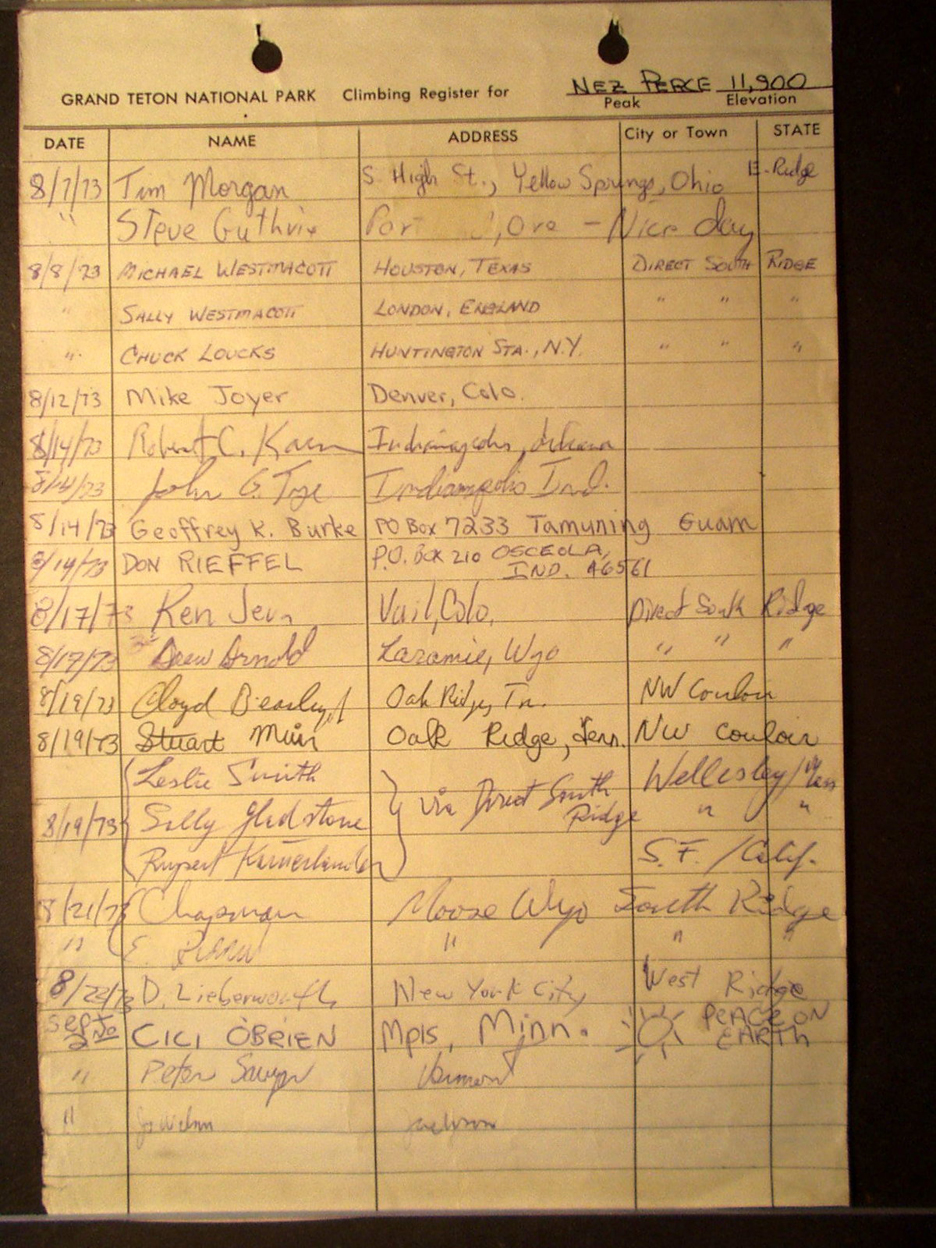 GRAND TETON NATIONAL PARK Climbing Register for NEZ PERCE 11,900
Peak Elevation
DATE NAME ADDRESS City or Town STATE
8/7/73 Tim Morgan S. High St., Yellow Springs, Ohio E. Ridge
" Steve Guthrie Ore - Nice day
8/8/73 MICHAEL WESTMACOTT HOUSTON, TEXAS DIRECT SOUTH RIDGE
" SALLY WESTMACOTT LONDON, ENGLAND " " "
" CHUCK LOUCKS HUNTINGTON STA., N.Y. " " "
8/12/73 Mike Joyer Denver, Colo.
8/14/73 Robert C. Indianapolis, Indiana
8/14/73 John G. Indianapolis Ind.
8/14/73 Geoffrey K. Burke PO Box 7233 Tamuning Guam
8/14/73 DON RIEFFEL P.O. BOX 210 OSCEOLA,
IND. 46561
8/17/73 Ken Vail, Colo, Direct South Ridge
8/17/73 Drew Arnold Laramie, Wyo " " "
8/19/73 Oak Ridge, Tn. NW Couloir
8/19/73 Stuart Muir Oak Ridge, Tenn. NW Couloir
Leslie Smith Wellesley/Mass
8/19/73 Sally Gladstone via Direct South Ridge " "
Rupert S.F. / Calif.
8/21/73 Chapman Moose Wyo South Ridge
" E. " " "
8/22/73 D. New York City West Ridge
Sept 2nd CICI O'BRIEN Mpls, Minn. PEACE ON
EARTH
" Peter Vermont
"